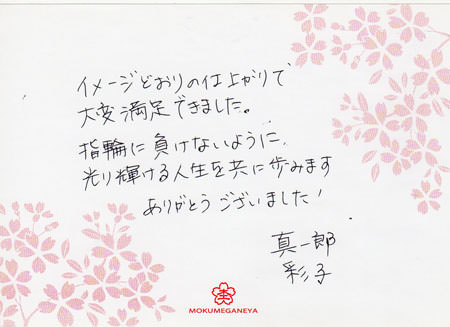 イメージどおりの仕上がりで
大変満足できました。
指輪に負けないように、
光り輝ける人生を共に歩みます
ありがとうございました!
真一郎
彩子
杢
MOKUMEGANEYA